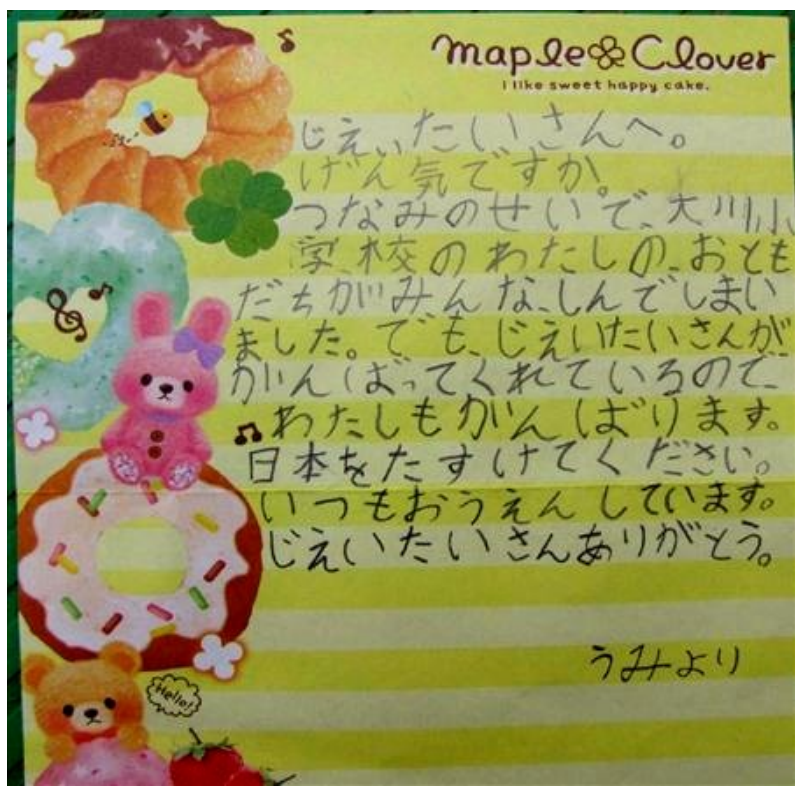 maple Clover
I like sweet happy cake.
じえいたいさんへ。
げん気ですか。
つなみのせいで、大川小
学校のわたしの、おとも
だちがみんな、しんでしまい
ました。でも、じえいたいさんが、
がんばってくれているので、
わたしもがんばります。
日本をたすけてください。
いつもおうえんしています。
じえいたいさんありがとう。
うみより
Hello!